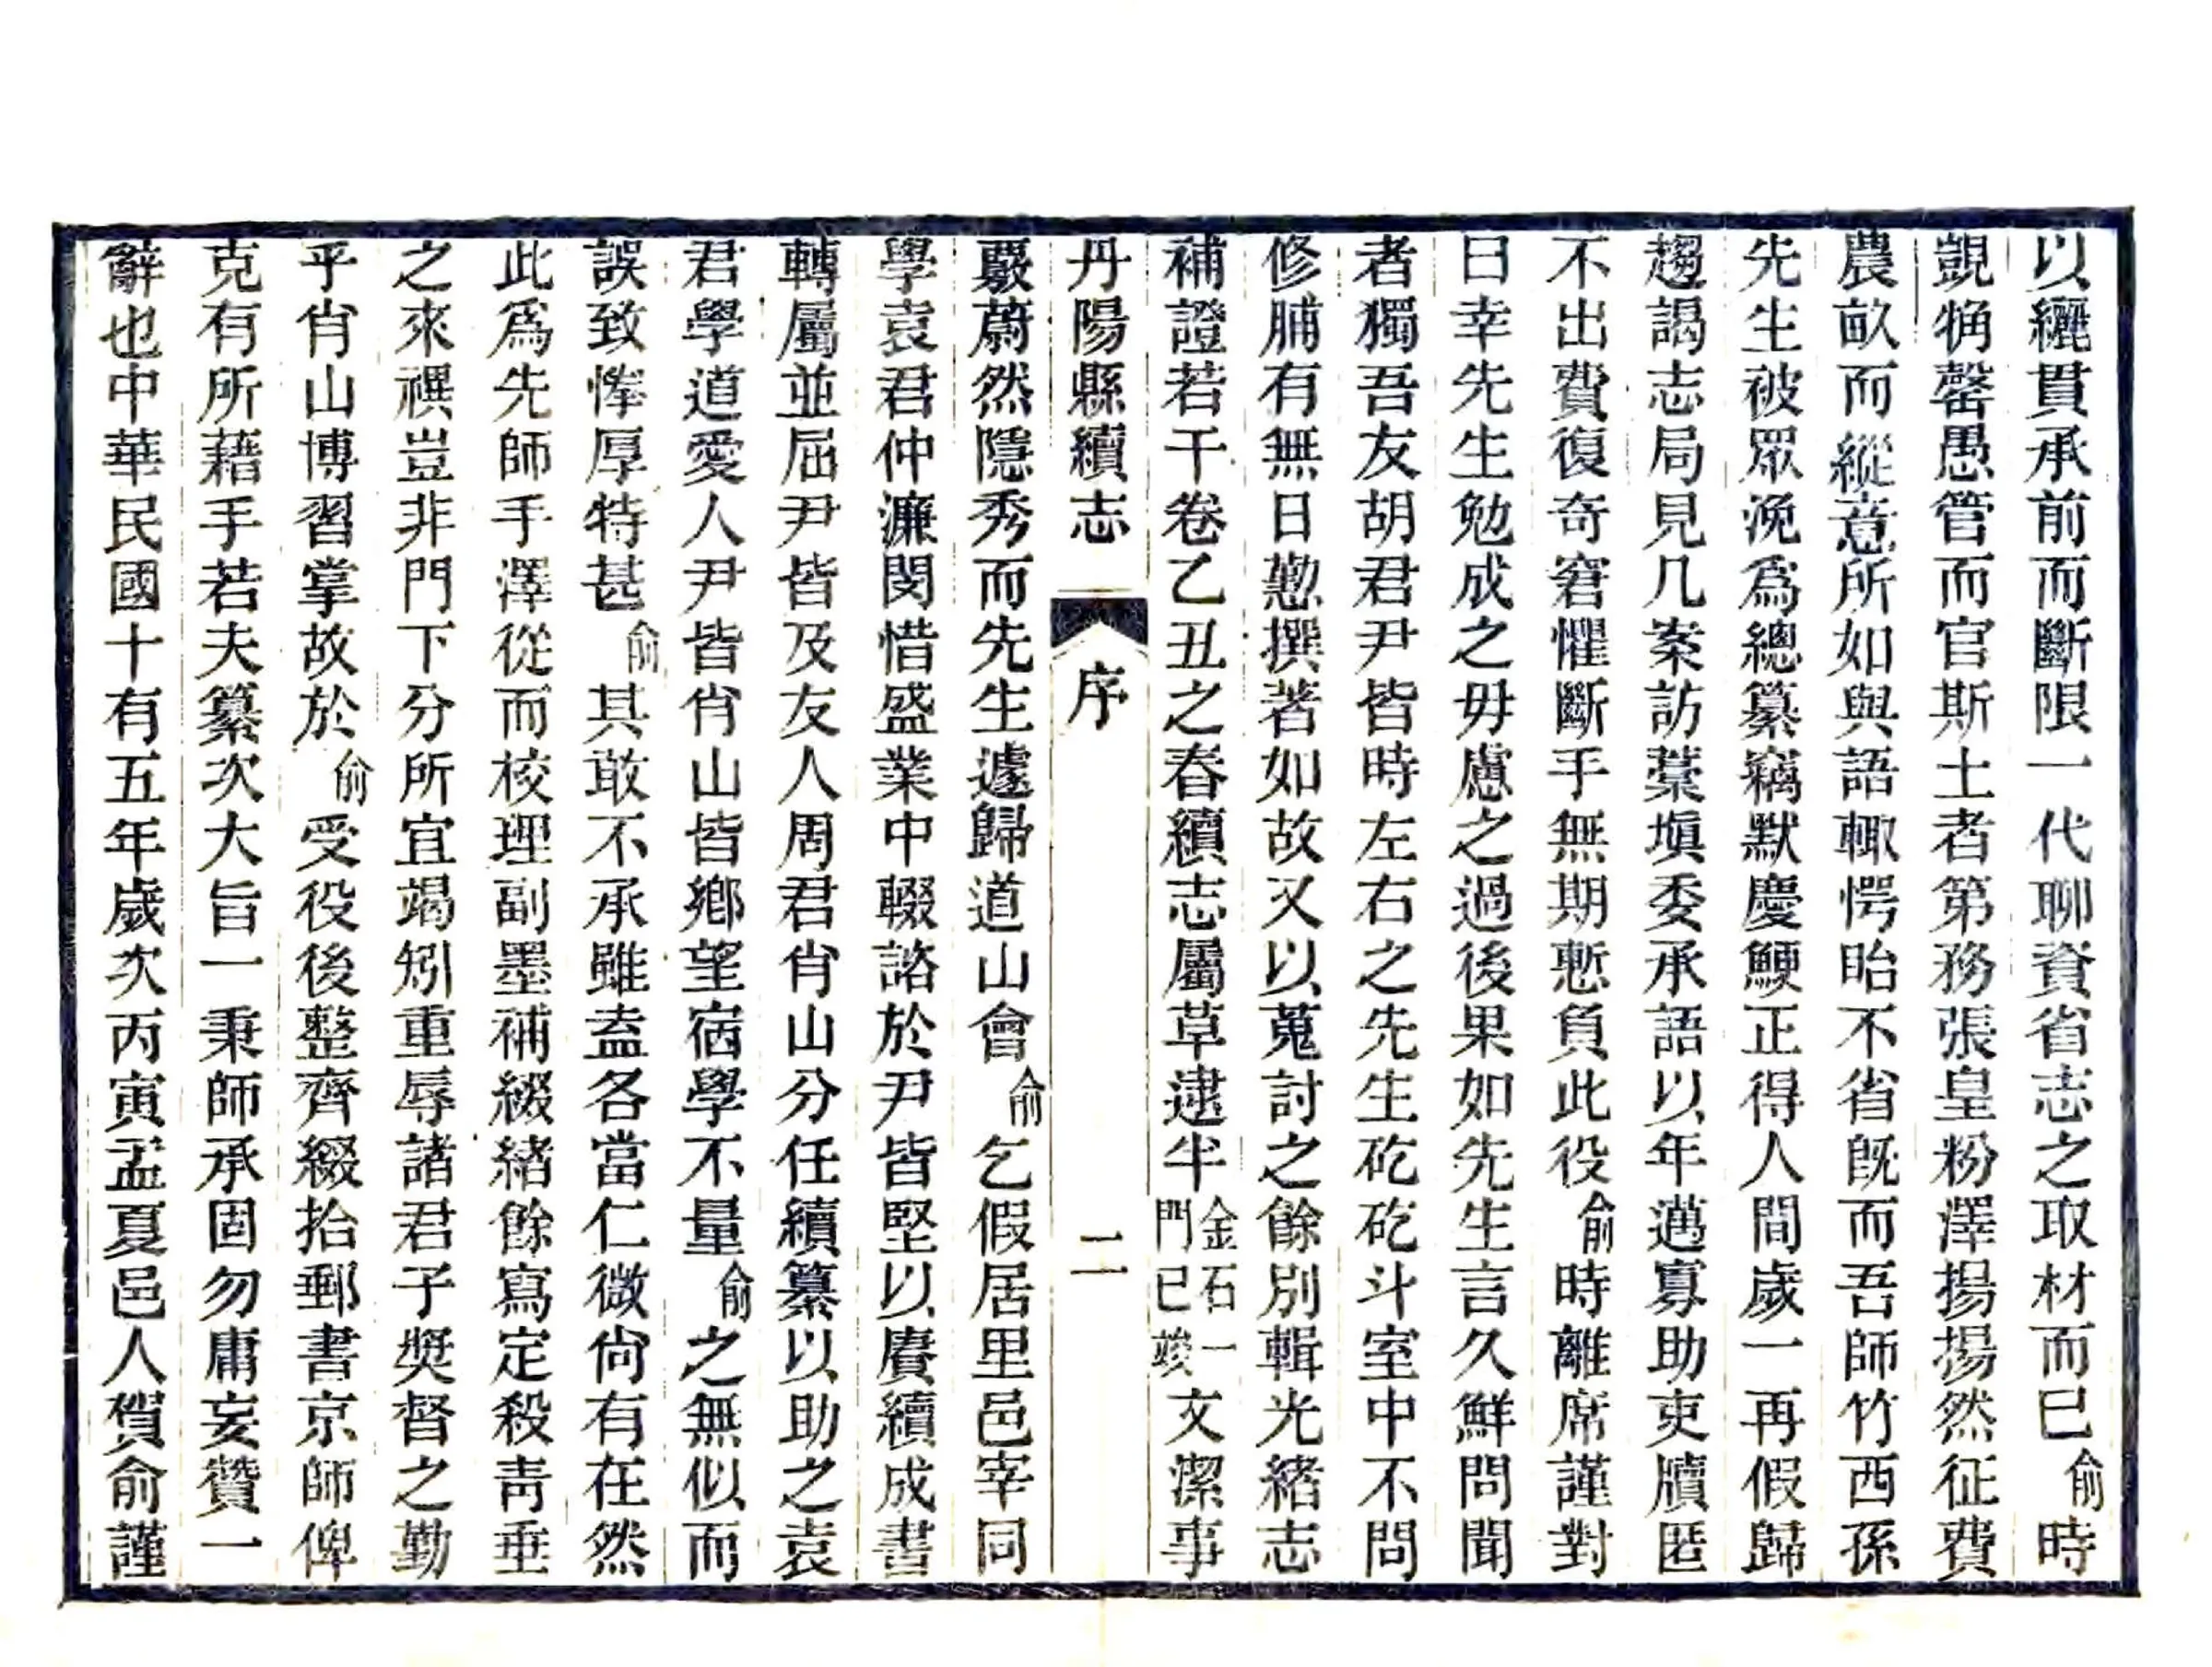 以纚貫承前而斷限一代聊資省志之取材而已俞時
覬觕罄愚管而官斯土者第務張皇粉澤揚揚然征費
農畝而縱意所如與語輒愕眙不省旣而吾師竹西孫
先生被眾浼爲總纂竊默慶鯁正得人間歲一再假歸
趨謁志局見几案訪藁塡委承語以年邁寡助吏牘匿
不出費復奇窘懼斷手無期慙負此役俞時離席謹對
曰幸先生勉成之毋慮之過後果如先生言久鮮問聞
者獨吾友胡君尹皆時左右之先生矻矻斗室中不問
修脯有無日懃撰著如故又以蒐討之餘別輯光緒志
補證若干卷乙丑之春續志屬草逮半金石一門已竣文潔事
丹陽縣續志 序 二
覈蔚然隱秀而先生遽歸道山會俞乞假居里邑宰同
學袁君仲濂閔惜盛業中輟諮於尹皆堅以賡續成書
轉屬並屈尹皆及友人周君肖山分任續纂以助之袁
君學道愛人尹皆肖山皆鄉望宿學不量俞之無似而
誤致惓厚特甚俞其敢不承雖盍各當仁微尙有在然
此爲先師手澤從而校理副墨補綴緒餘寫定殺靑垂
之來禩豈非門下分所宜竭矧重辱諸君子奬督之勤
乎肖山博習掌故於俞受役後整齊綴拾郵書京師俾
克有所藉手若夫纂次大旨一秉師承固勿庸妄贊一
辭也中華民國十有五年歲次丙寅孟夏邑人賀俞謹